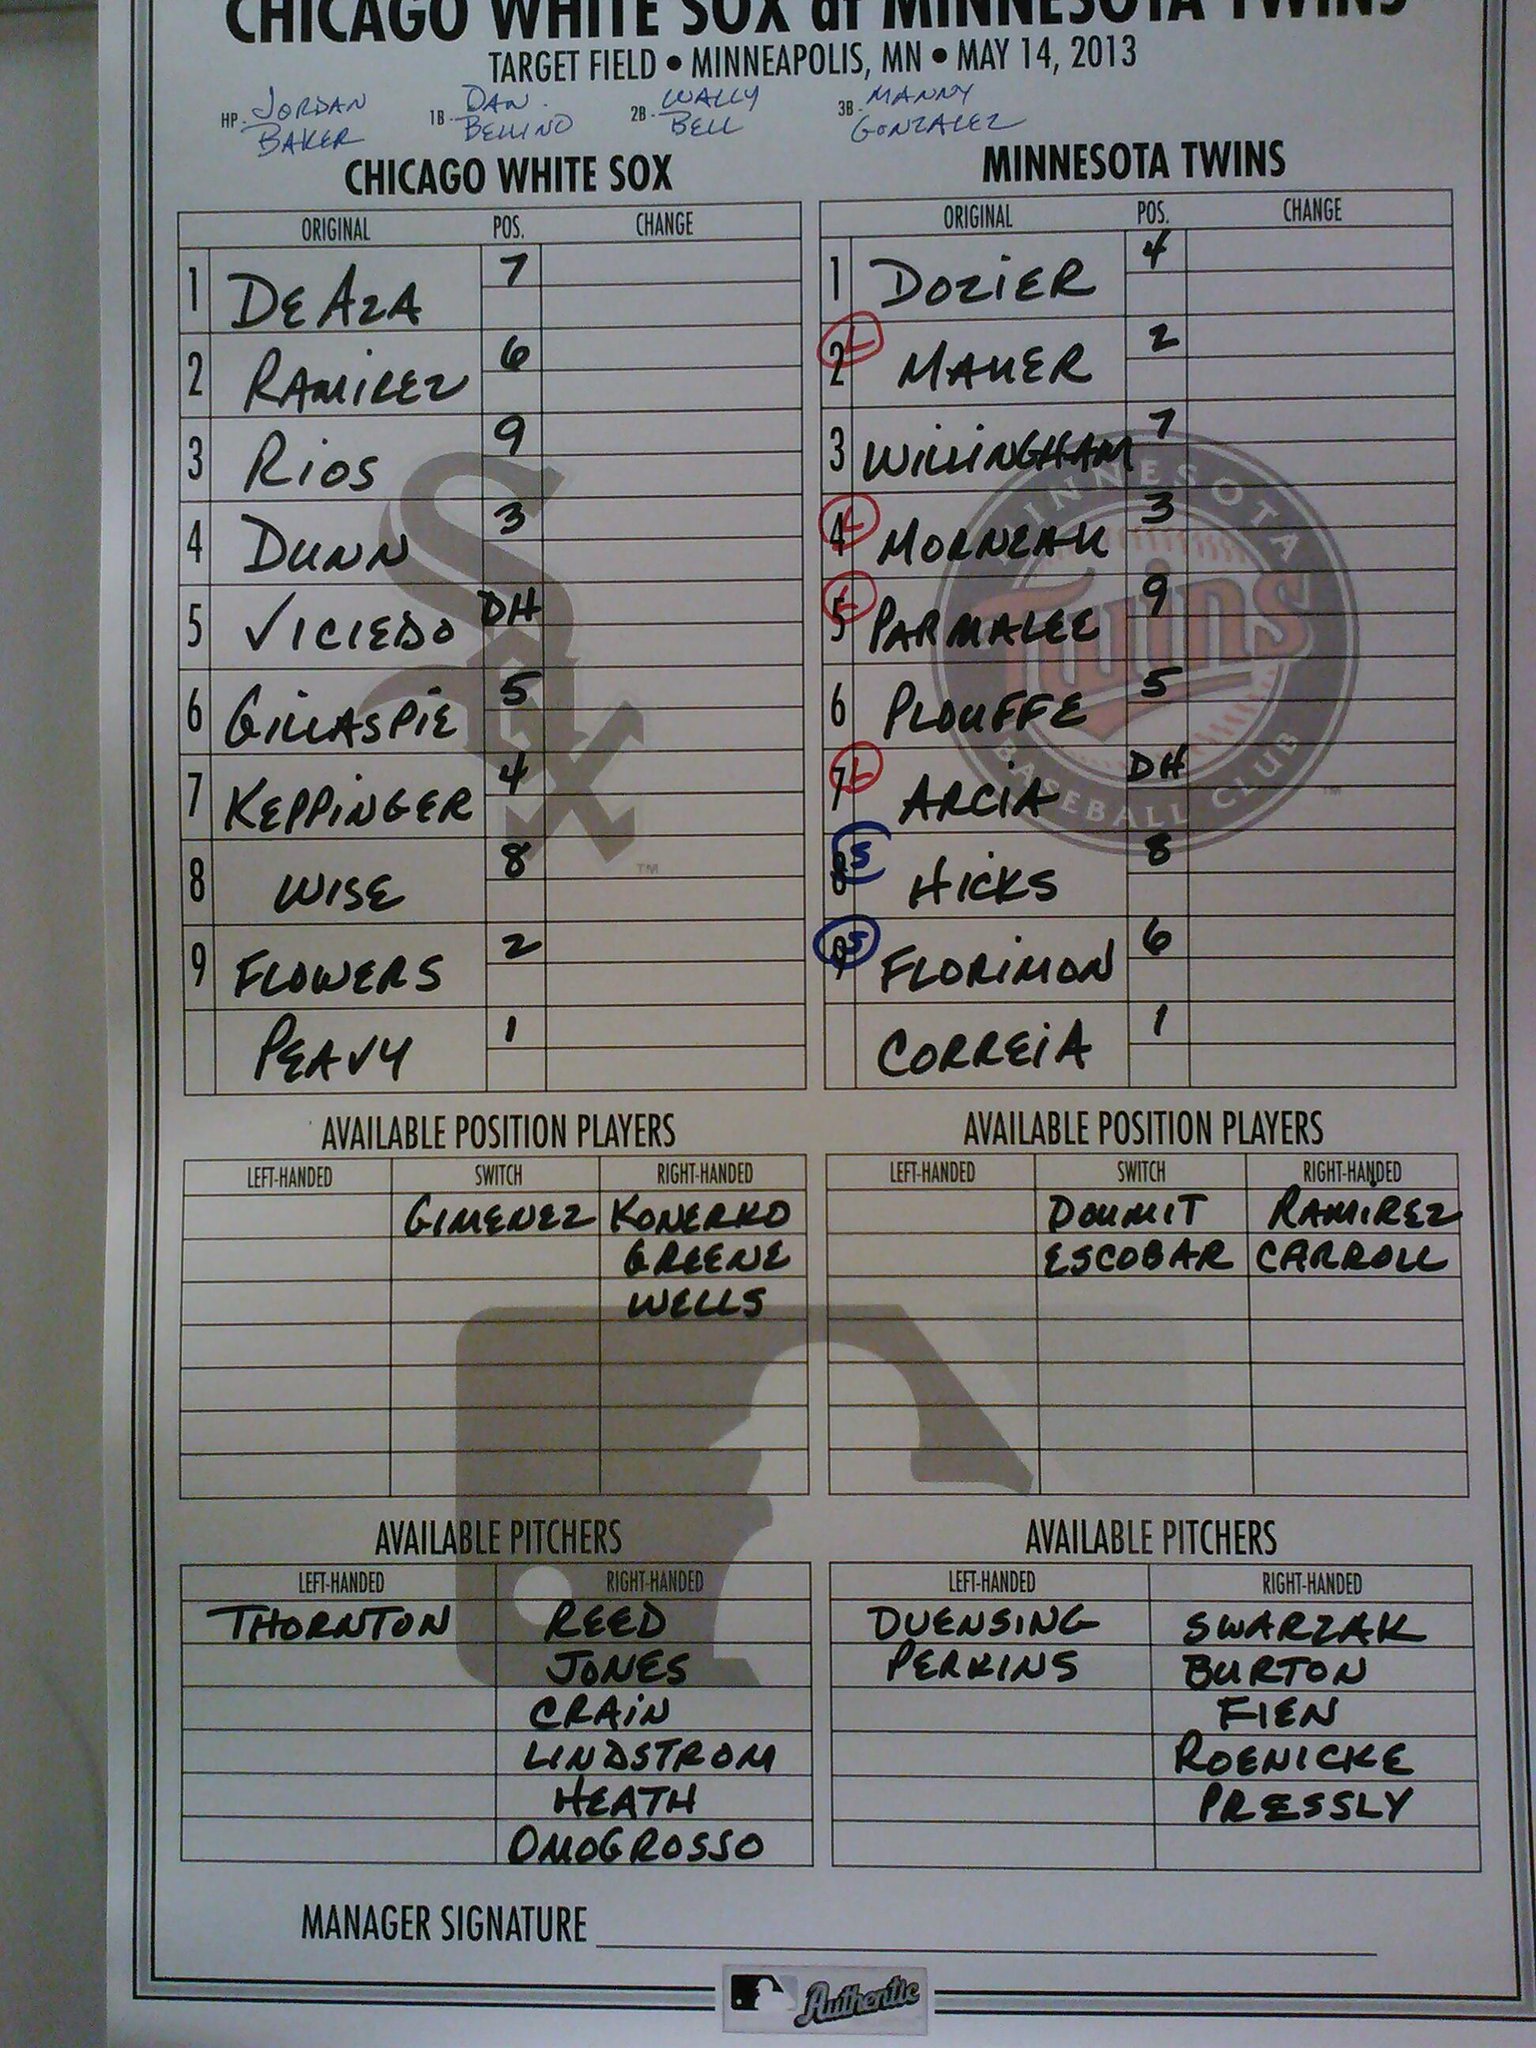 CHICAGO WHITE SOX at MINNESOTA TWINS
TARGET FIELD • MINNEAPOLIS, MN • MAY 14, 2013
HP. JORDAN BAKER 1B. DAN BELLINO 2B. WALLY BELL 3B. MANNY GONZALEZ
CHICAGO WHITE SOX
ORIGINAL POS. CHANGE
1 DE AZA 7
2 RAMIREZ 6
3 RIOS 9
4 DUNN 3
5 VICIEDO DH
6 GILLASPIE 5
7 KEPPINGER 4
8 WISE 8
9 FLOWERS 2
PEAVY 1
MINNESOTA TWINS
ORIGINAL POS. CHANGE
1 DOZIER 4
2 L MAUER 2
3 WILLINGHAM 7
4 L MORNEAU 3
5 L PARMALEE 9
6 PLOUFFE 5
7 L ARCIA DH
8 S HICKS 8
9 S FLORIMON 6
CORREIA 1
MINNESOTA
Twins
BASEBALL CLUB
Sox
TM
TM
AVAILABLE POSITION PLAYERS
LEFT-HANDED SWITCH RIGHT-HANDED
GIMENEZ KONERKO
GREENE
WELLS
AVAILABLE POSITION PLAYERS
LEFT-HANDED SWITCH RIGHT-HANDED
DOUMIT RAMIREZ
ESCOBAR CARROLL
AVAILABLE PITCHERS
LEFT-HANDED RIGHT-HANDED
THORNTON REED
JONES
CRAIN
LINDSTROM
HEATH
OMOGROSSO
AVAILABLE PITCHERS
LEFT-HANDED RIGHT-HANDED
DUENSING SWARZAK
PERKINS BURTON
FIEN
ROENICKE
PRESSLY
MANAGER SIGNATURE
Authentic